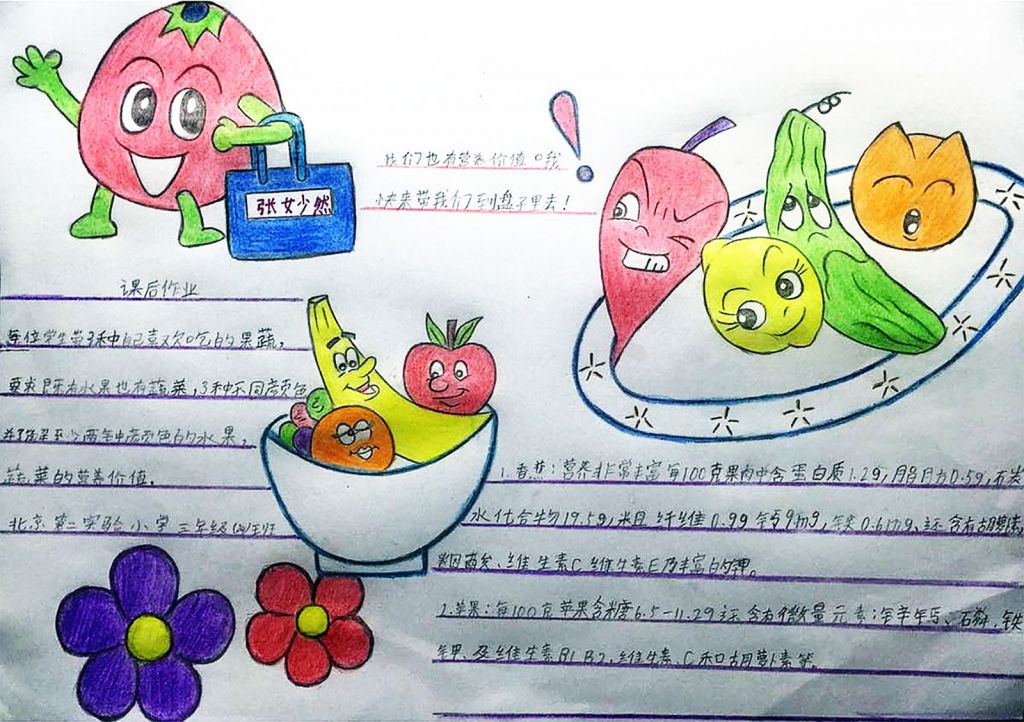 我们也有营养价值。我
快来带我们到盘子里去!
张女少然
课后作业
每位学生带3种自己喜欢吃的果蔬,
要求既有水果也有蔬菜,3种不同颜色
至少两种颜色的水果,
蔬菜的营养价值。
北京第二实验小学三年级(4)班
1.香蕉:营养非常丰富每100克果肉中含蛋白质1.2g,脂肪0.5g,
水化合物19.5g,粗纤维0.9g钙9mg,铁0.6mg、还含有胡萝
烟酸、维生素C维生素E及丰富的钾。
2.苹果:每100克苹果含糖6.5-11.2g还含有微量元素:锌钙、石磷,铁
钾、及维生素B1B2、维生素、C和胡萝卜素等。